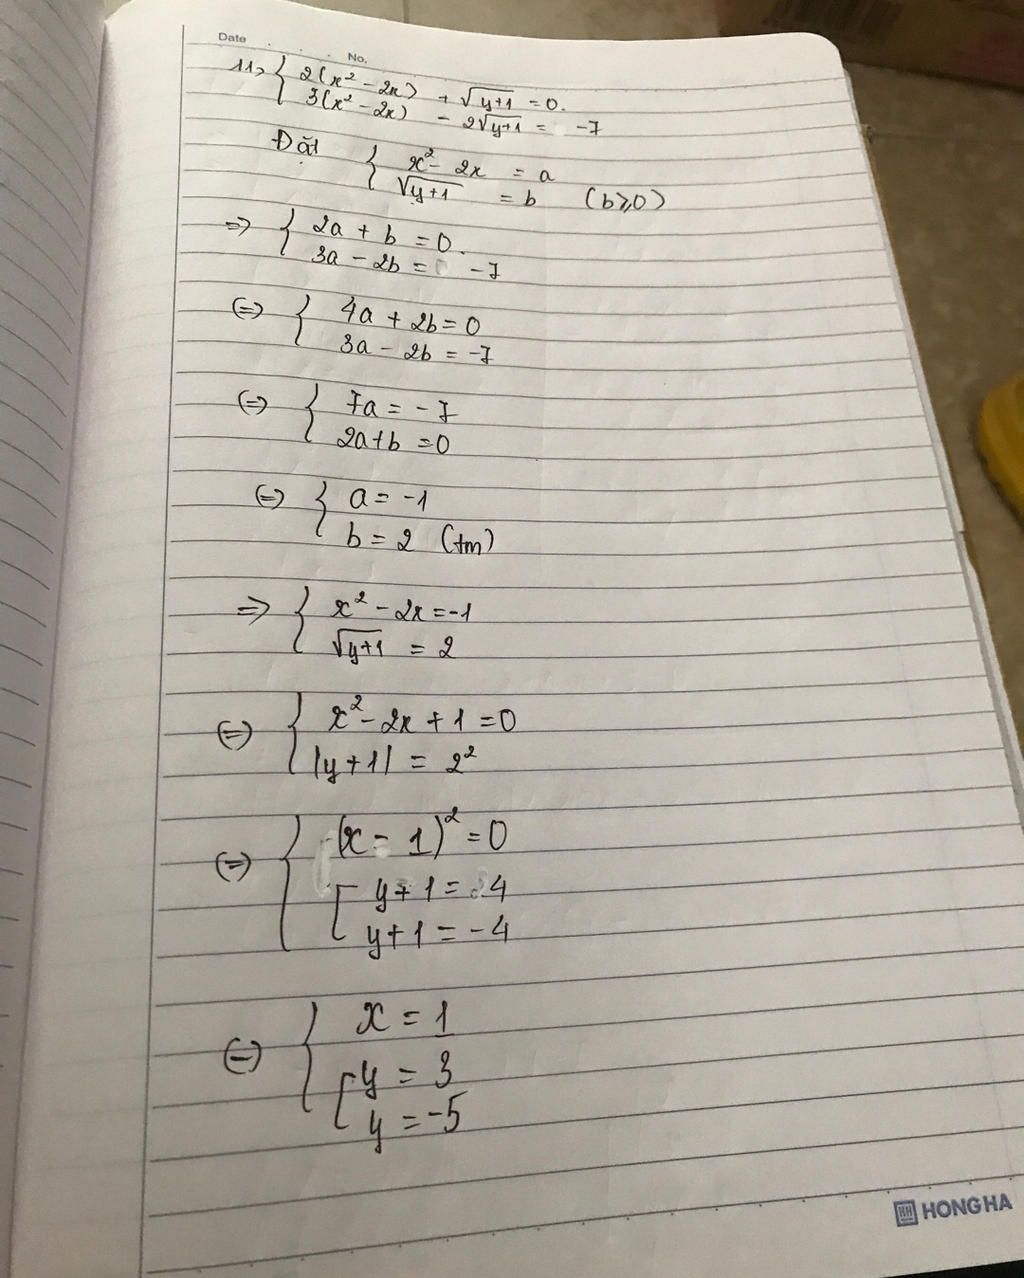 Date
No.
11, { 2(x² - 2x) + √(y+1) = 0.
3(x² - 2x) - 2√(y+1) = -7
Đặt { x² - 2x = a
√(y+1) = b (b⩾0)
=> { 2a + b = 0.
3a - 2b = -7
(=) { 4a + 2b = 0
3a - 2b = -7
(=) { 7a = -7
2a+b = 0
(=) { a = -1
b = 2 (tm)
=> { x² - 2x = -1
√(y+1) = 2
(=) { x² - 2x + 1 = 0
|y+1| = 2²
(=) { (x - 1)² = 0
[ y+1 = 4
y+1 = -4
(=) { x = 1
[ y = 3
y = -5
HH HONG HA